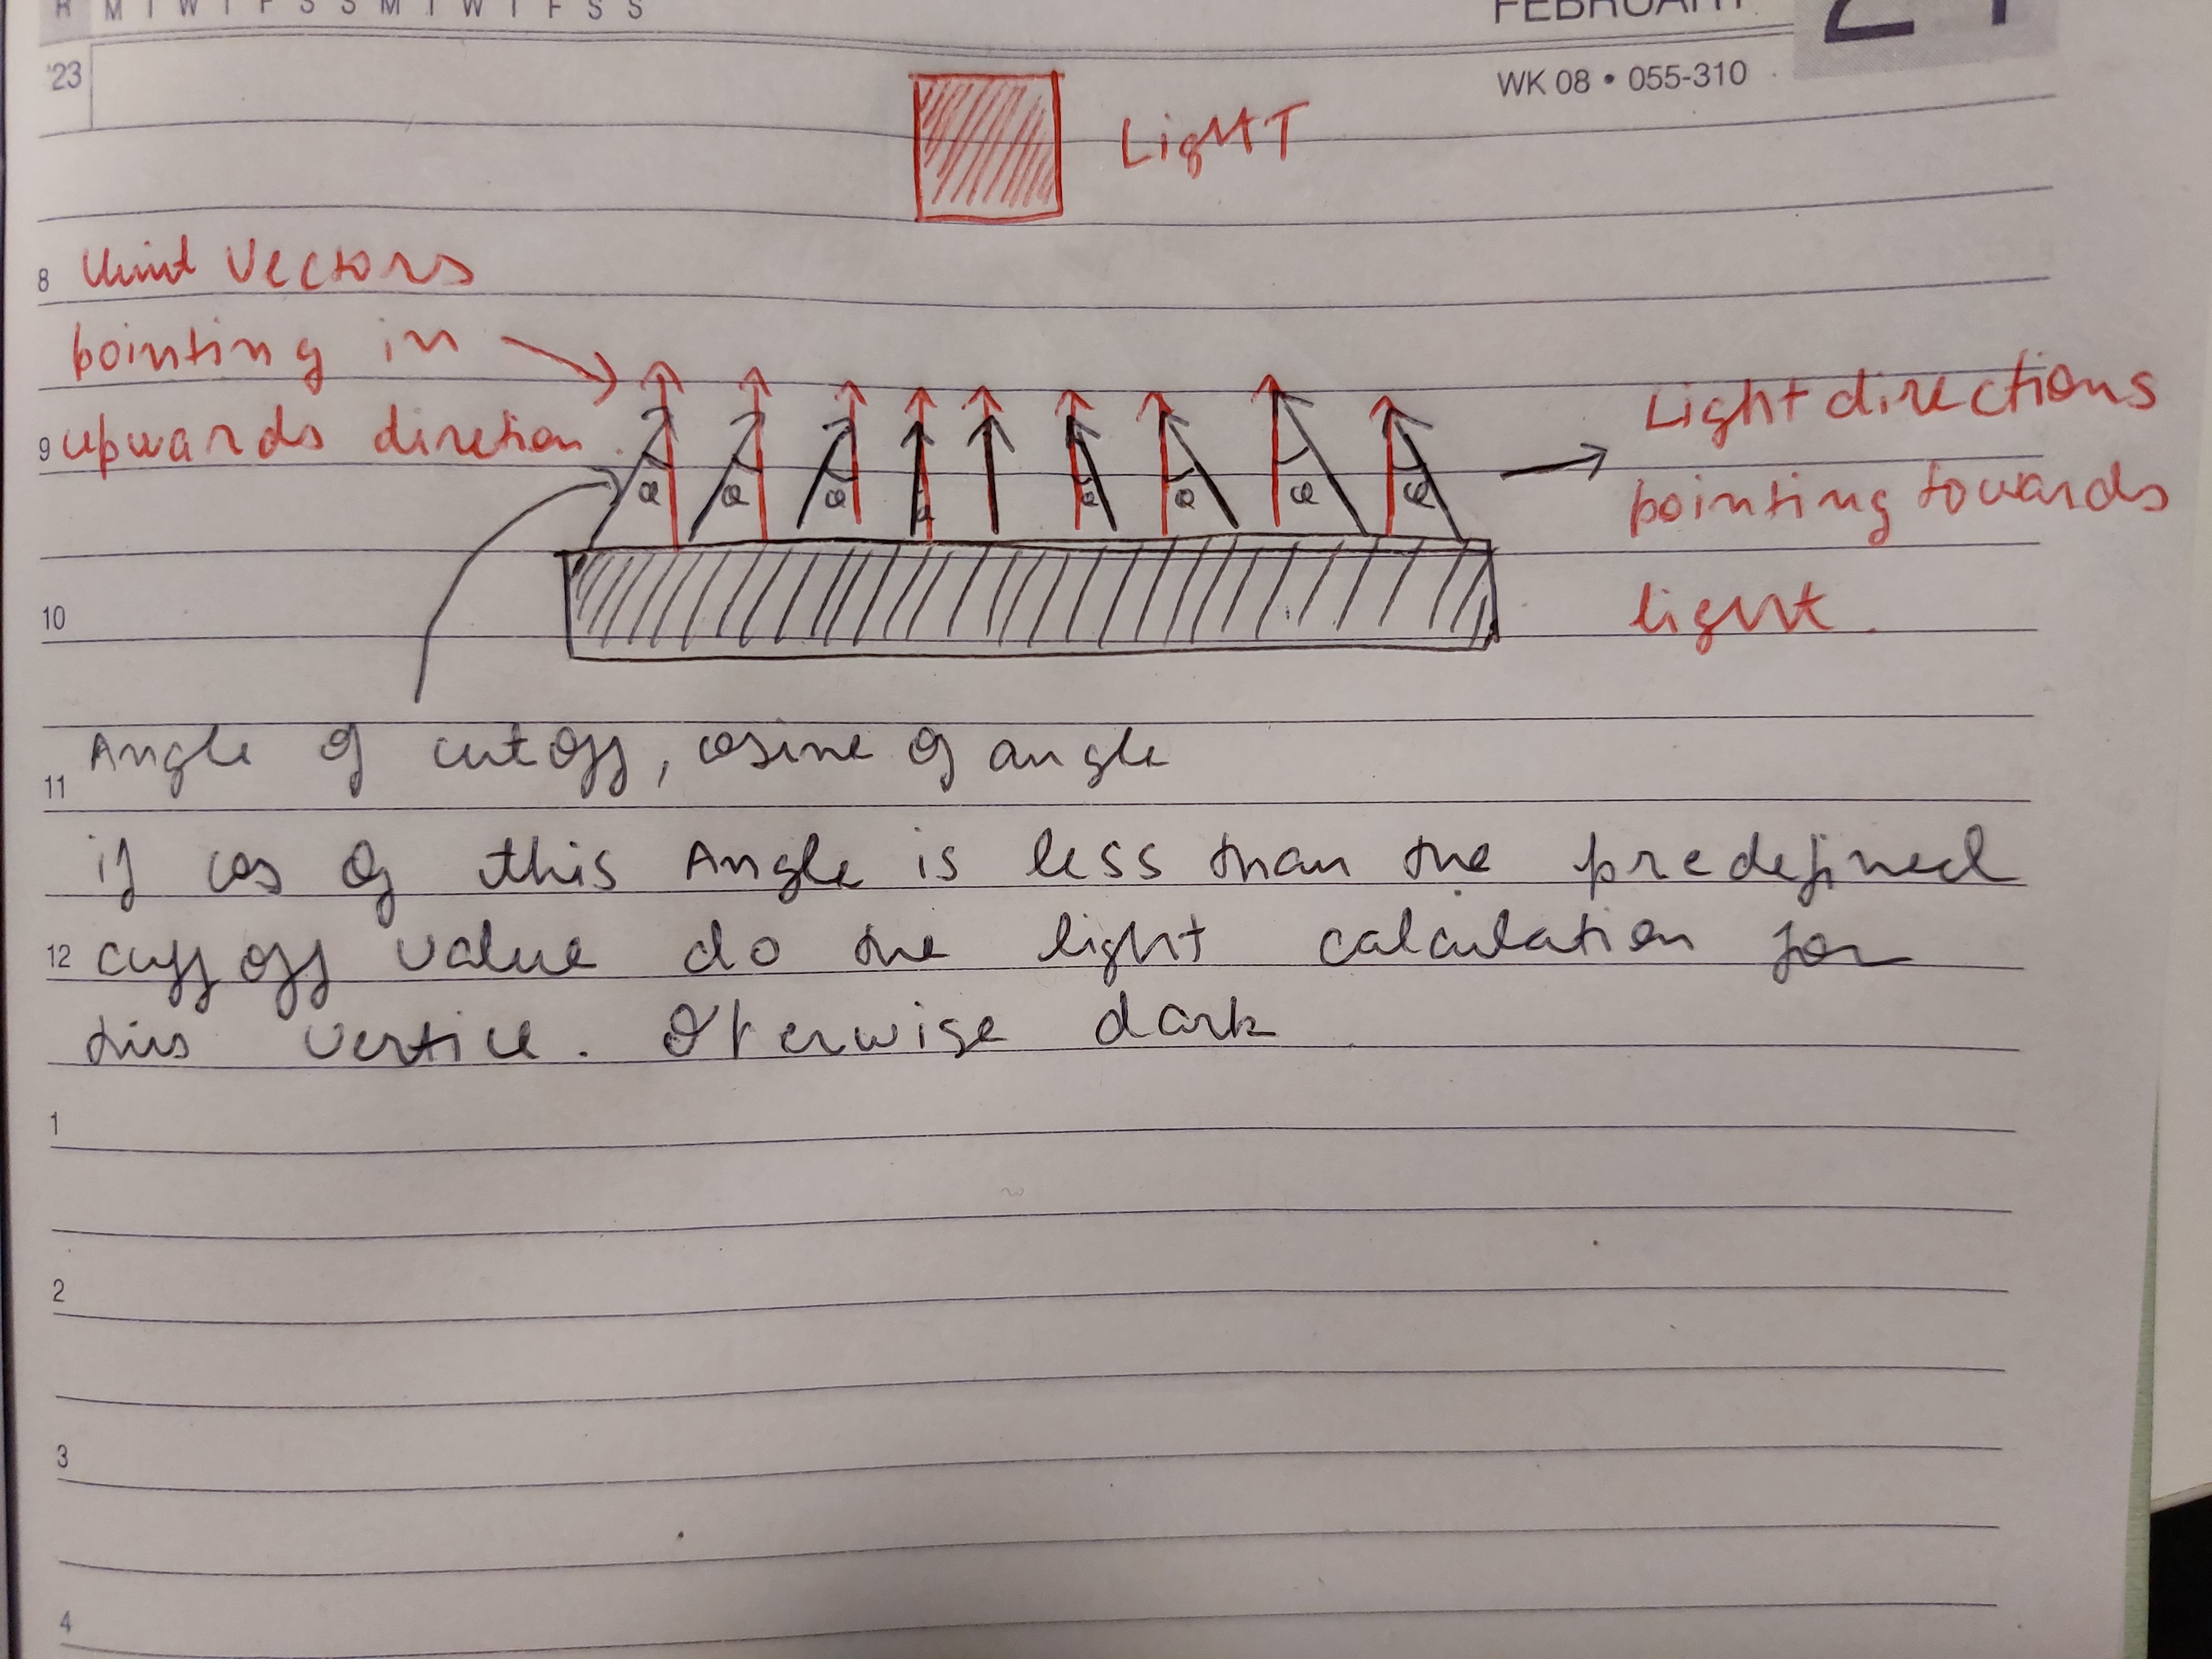 M T W T F S S M T W T F S S
FEBRUARY
'23
WK 08 • 055-310
LigHT
8 Unit Vectors
pointing in
9 upwards diretion
Light directions
pointing towards
light.
α α α α α α α α
10
Angle of cutoff, cosine of angle
11
if cos of this Angle is less than the predefined
12 cuff off value do the light calculation for
this vertice. Oterwise dark
1
2
3
4